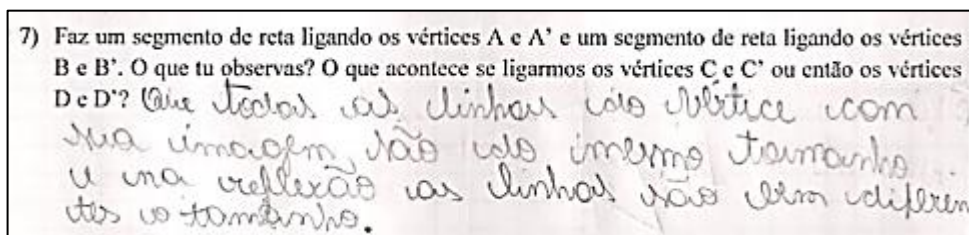 7) Faz um segmento de reta ligando os vértices A e A’ e um segmento de reta ligando os vértices
B e B’. O que tu observas? O que acontece se ligarmos os vértices C e C’ ou então os vértices
D e D’? Que todas as linhas do vértice com
sua imagem, são do mesmo tamanho
e na reflexão as linhas são em diferen
tes o tamanho.